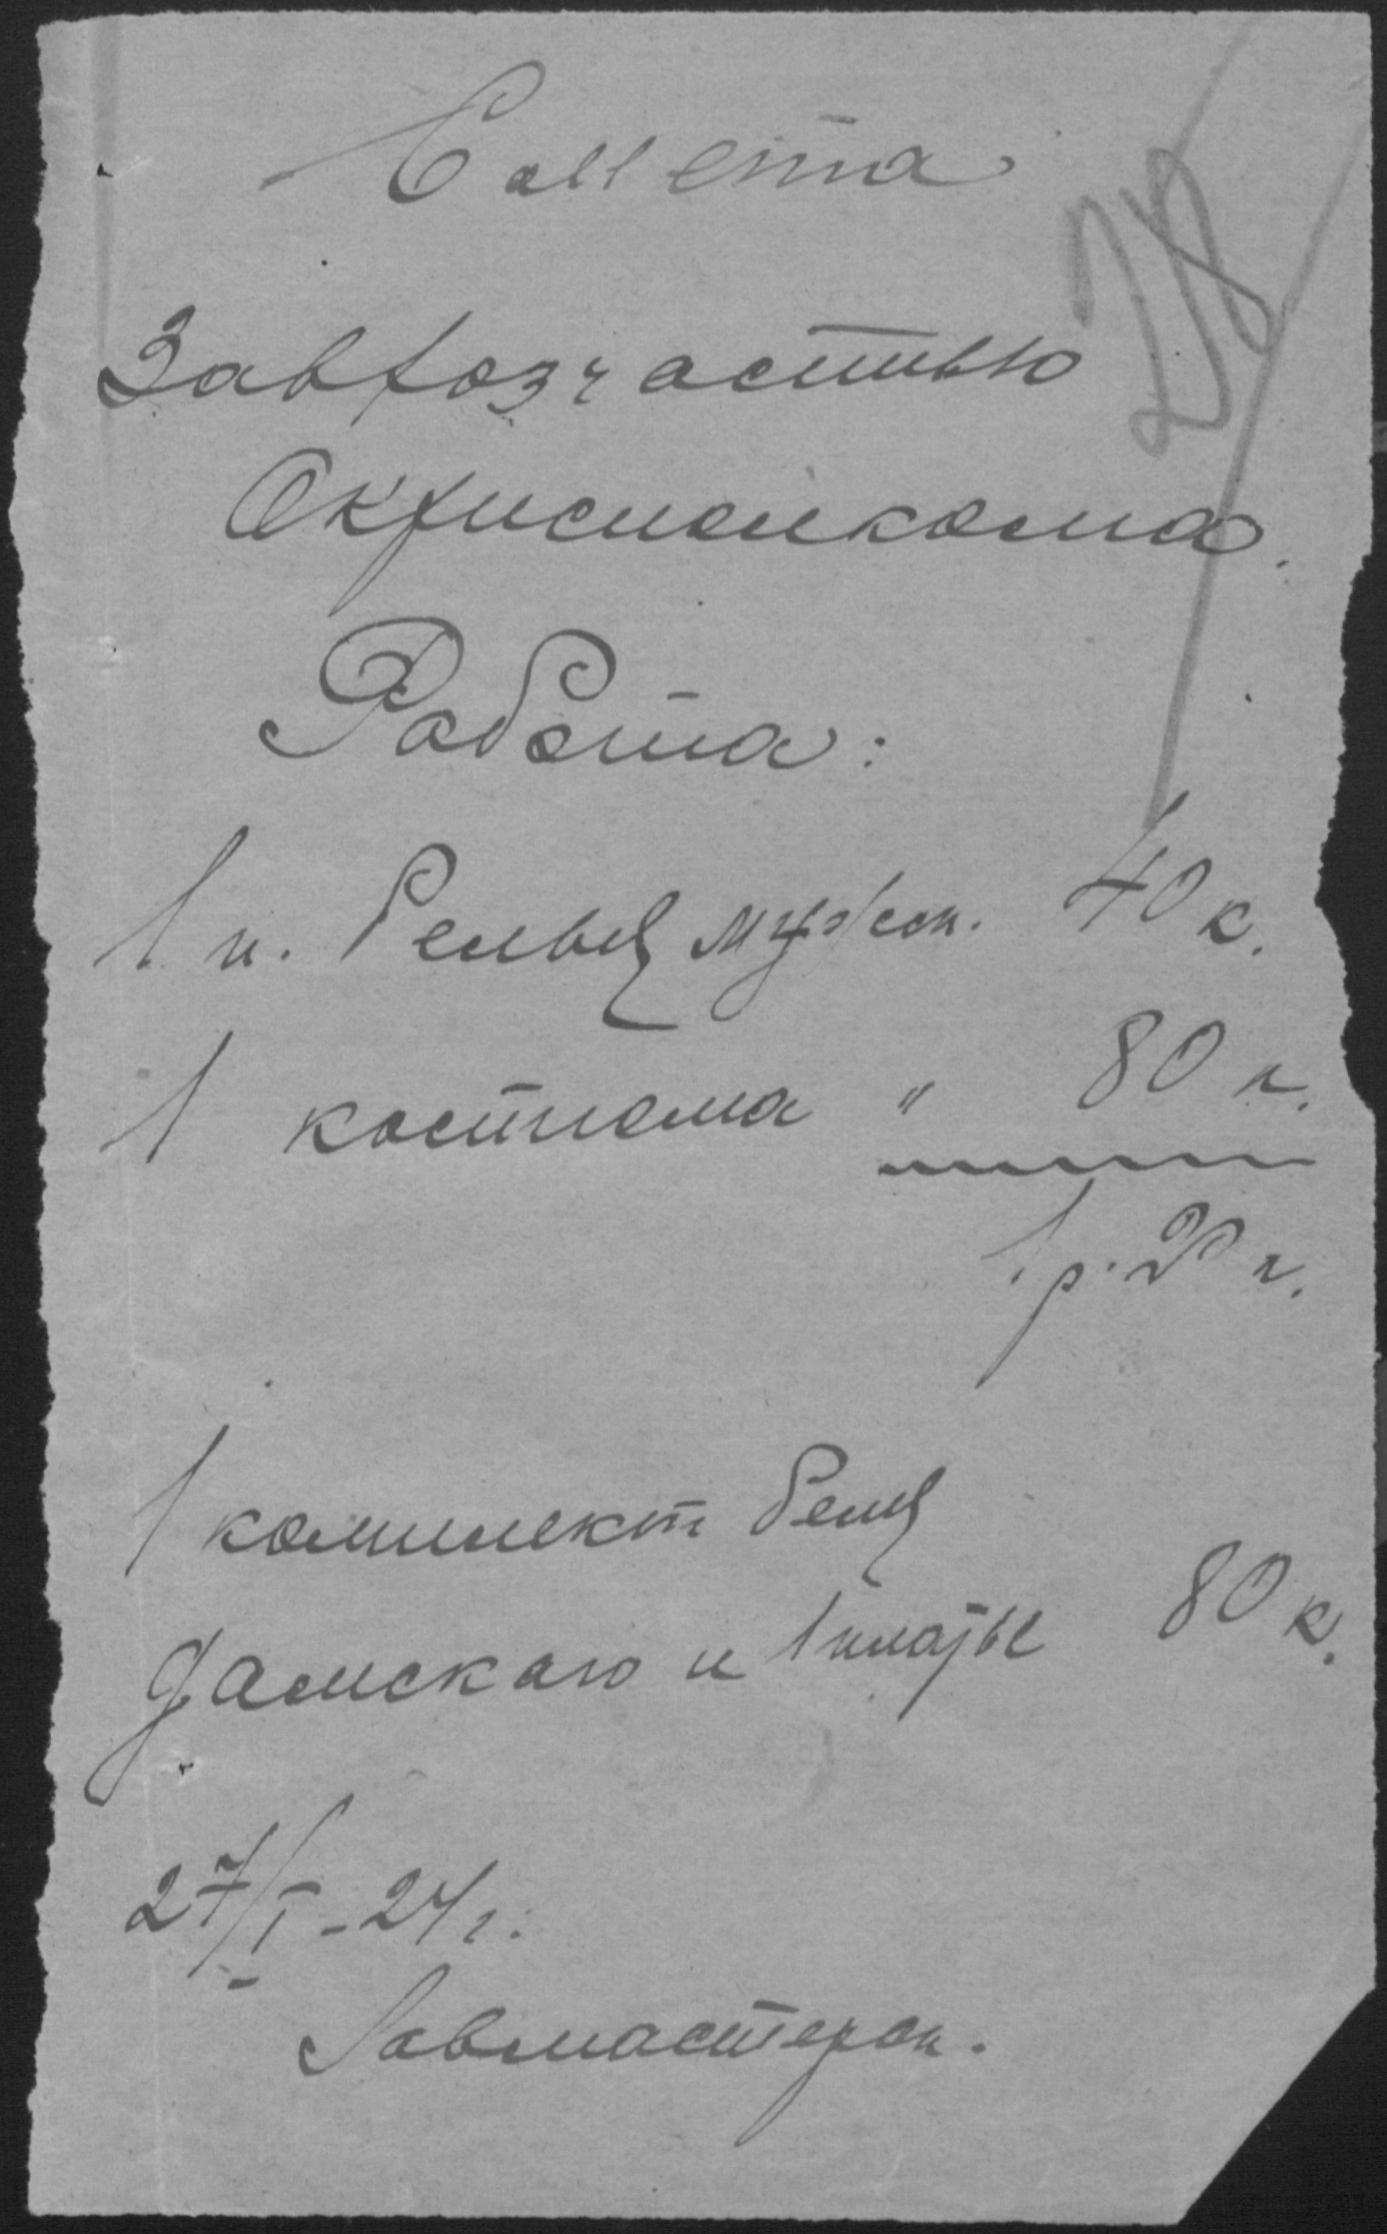 Смета
28
Завхозчастью
Окрисполкома.
Работа:
1 п. белья мужск. 40 к.
1 костюма " 80 к.
1 р. 20 к.
1 комплект белья
дамскаго и 1 платье 80 к.
27/I-24 г.
Завмастерск.